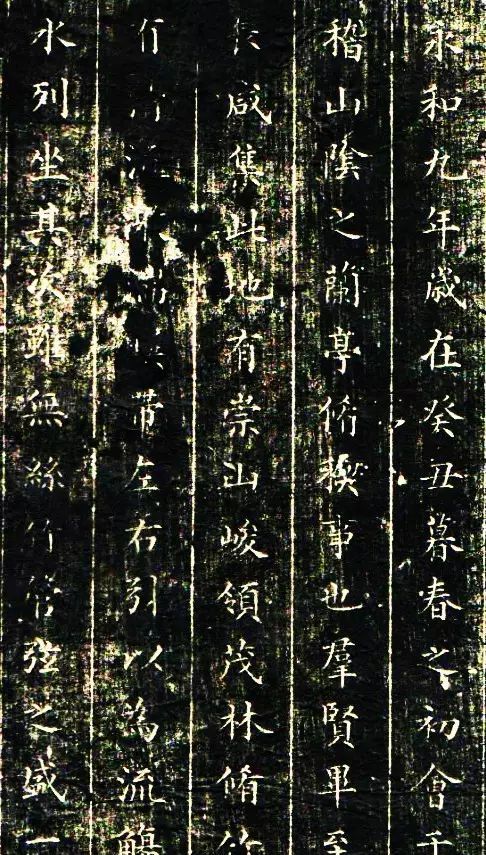 永和九年歲在癸丑暮春之初會于
稽山陰之蘭亭脩稧事也羣賢畢至
咸集此地有崇山峻領茂林脩竹
帶左右引以為流觴
水列坐其次雖無絲竹管弦之盛一